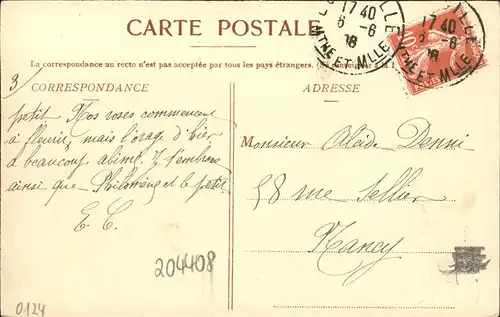 CARTE POSTALE
La correspondance au recto n'est pas acceptée par tous les pays étrangers.
CORRESPONDANCE
ADRESSE
3/
petit Nos roses commencent
à fleurir, mais l'orage d'hier
a beaucoup abîmé. J t'embrasse
ainsi que Philomène et le petit
E. C.
Monsieur Alcide Denni
58 rue Sellier
Nancy
17 40
6 - 6
MTHE ET MLLE
LLE
17 40
6 - 6
ET MLLE
POSTES
204408
0124